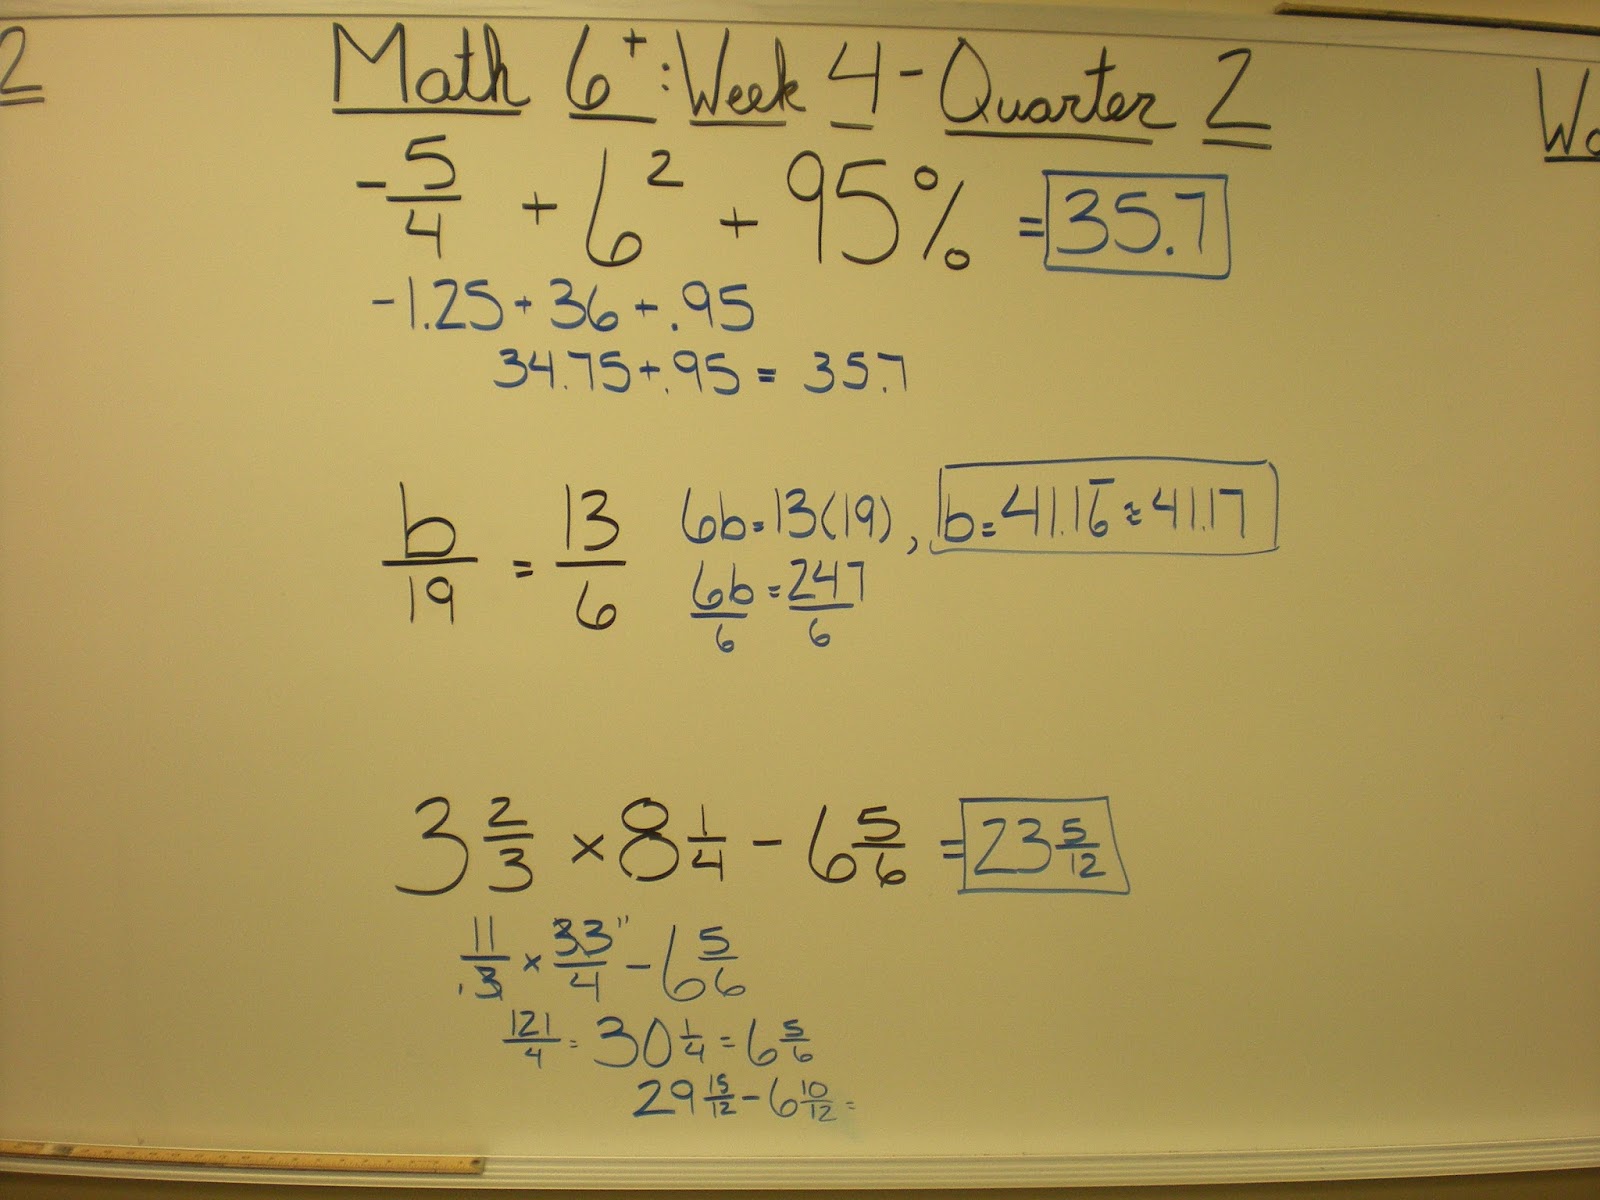 2
Math 6⁺: Week 4 - Quarter 2
Wo
-5/4 + 6² + 95% = 35.7
-1.25 + 36 + .95
34.75 + .95 = 35.7
b/19 = 13/6
6b = 13(19), b = 41.16̅ ≈ 41.17
6b/6 = 247/6
3 2/3 × 8 1/4 - 6 5/6 = 23 5/12
11/3 1 × 33/4 11 - 6 5/6
121/4 = 30 1/4 = 6 5/6
29 15/12 - 6 10/12 =